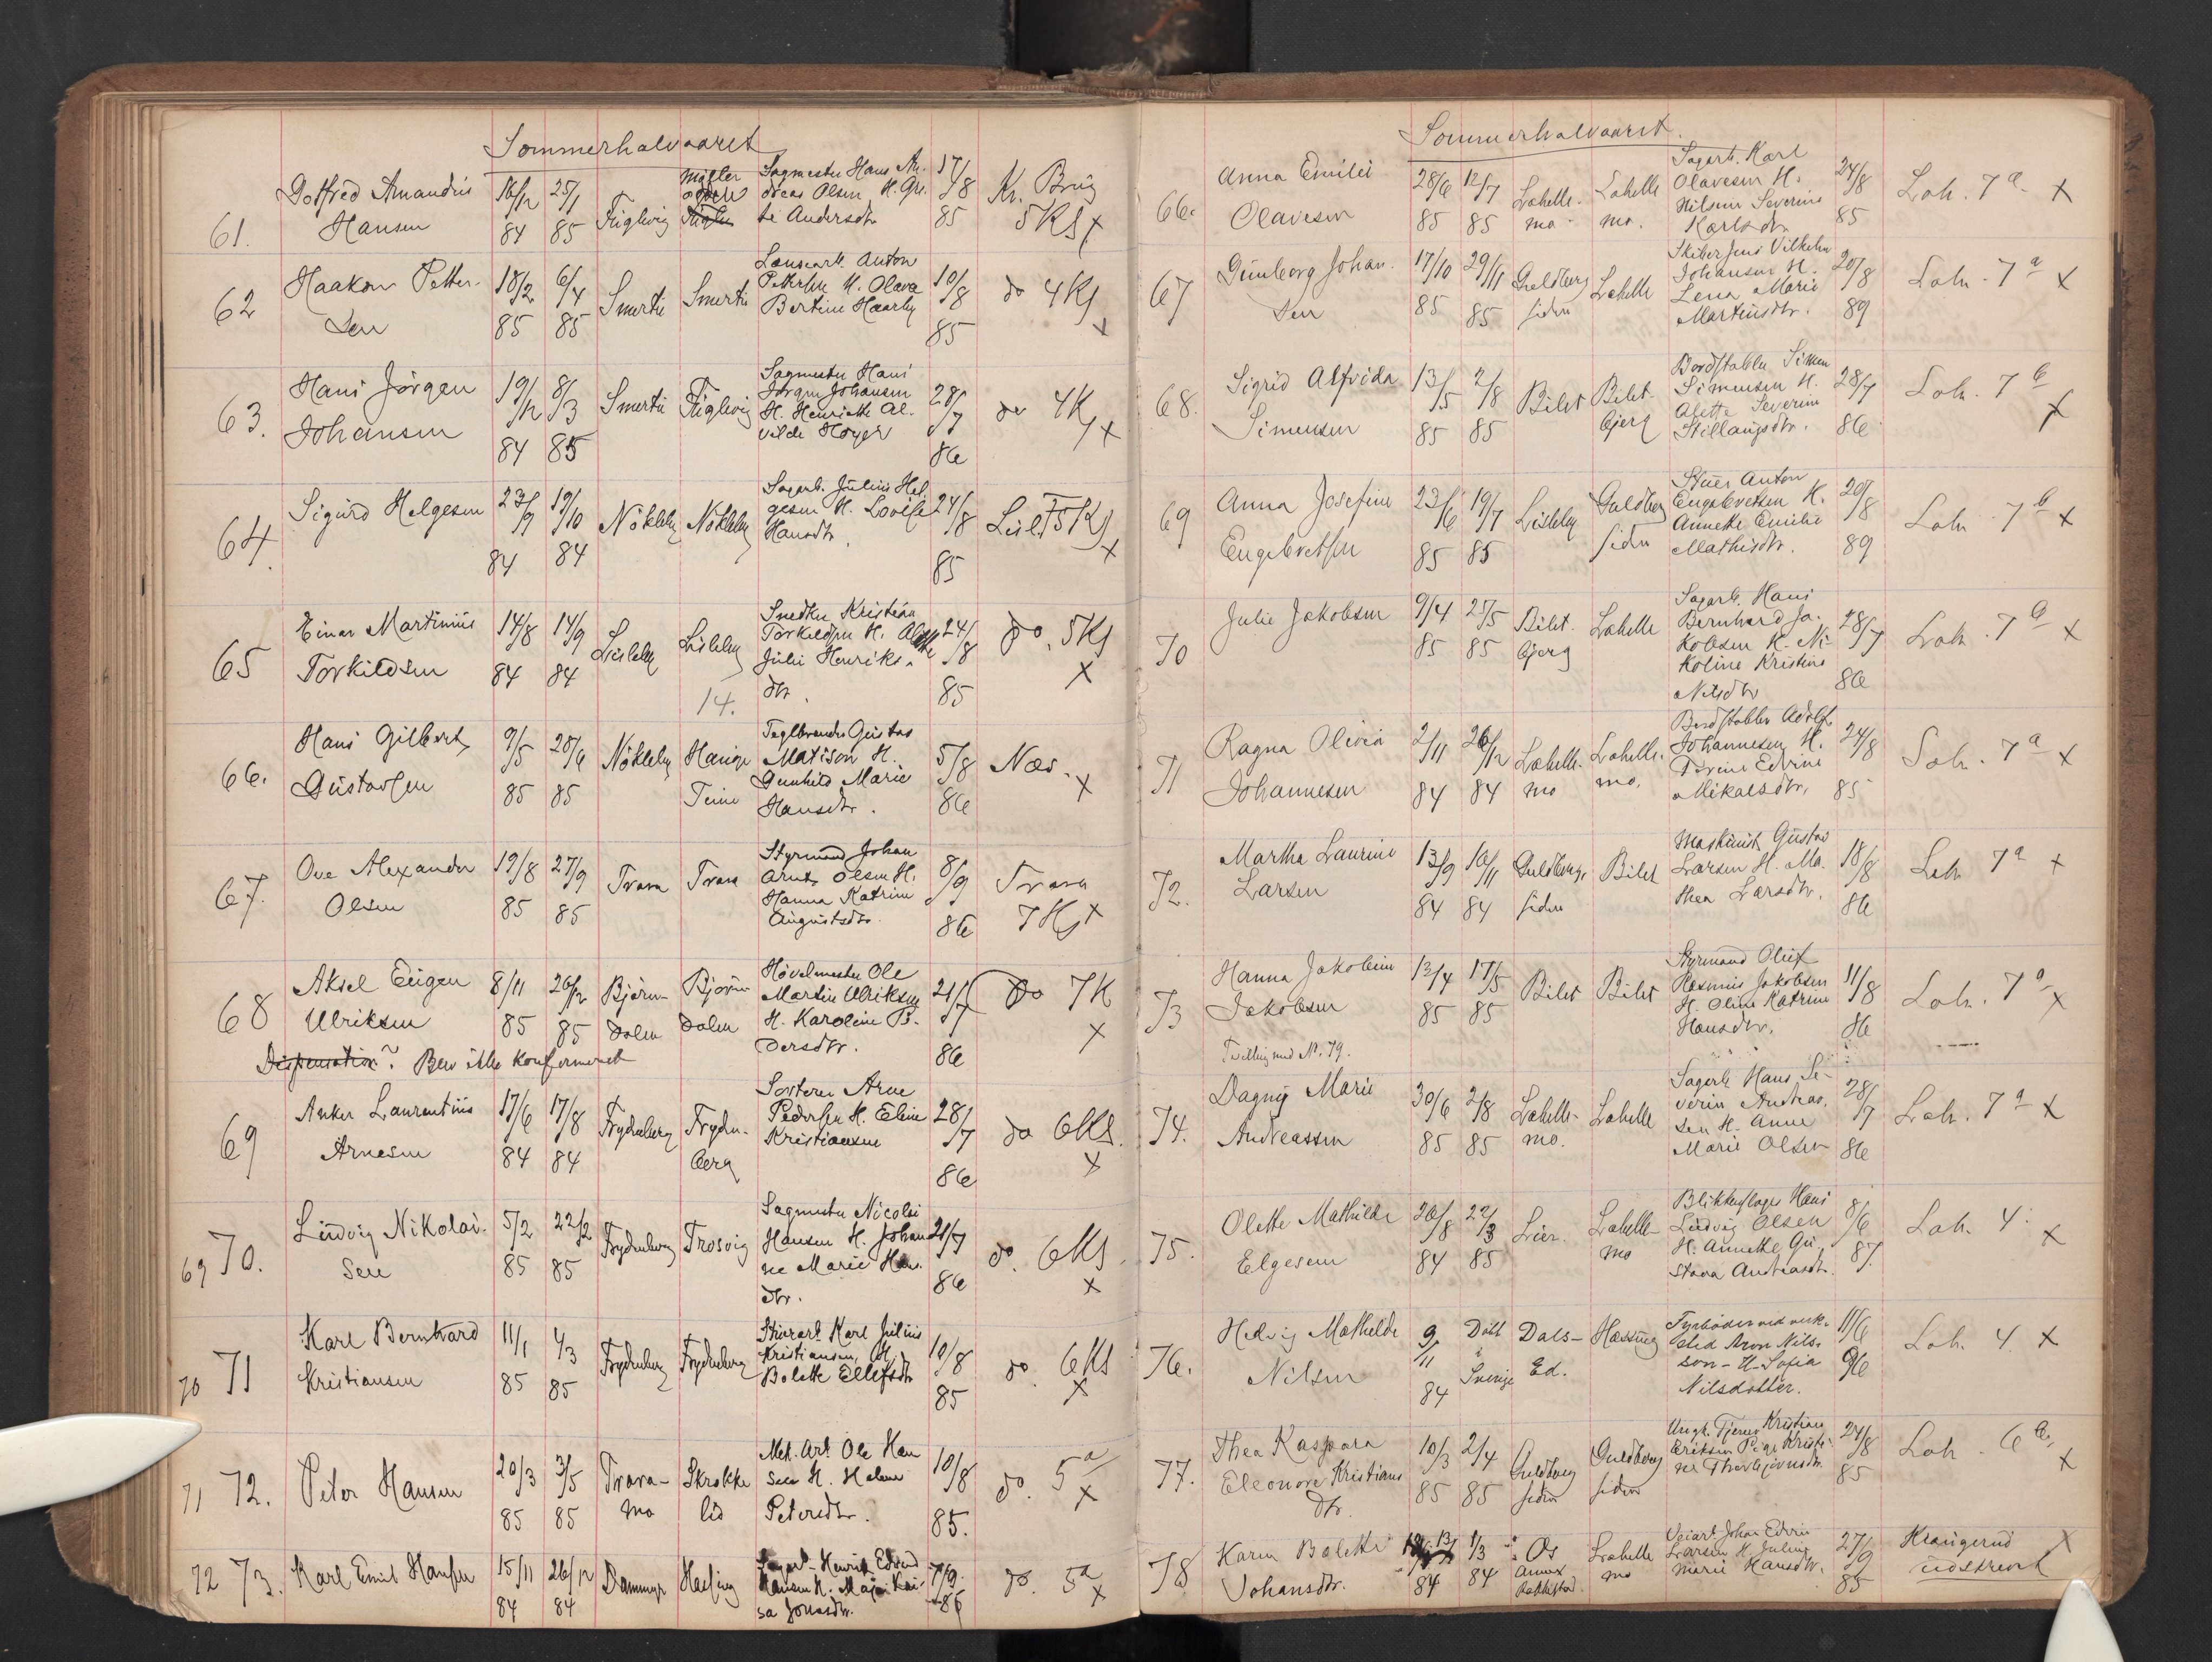 Sommerhalvaaret
61. Gotfred Amandus Hansen 16/12 84 25/1 85 Figlevig Møller odden Sagmester Hans Andreas Olsen H. Grete Andersdtr 17/8 85 Kr. Brug 5 Kl x
62 Haakon Pettersen 18/2 85 6/4 85 Smertu Smertu Anton Pettersen H. Olava Bertine Haarby 10/8 85 do 4 Kl x
63. Hans Jørgen Johansen 19/12 84 8/3 85 Smertu Figlevig Sagmester Hans Jørgen Johansen H. Henriette Alvilde Høyer 28/7 86 do 4 K x
64. Sigurd Helgesen 23/9 84 19/10 84 Nøkleby Nøkleby Sagarb. Julius Helgesen H. Lovise Hansdtr. 24/8 85 Lisl. 5 Kl x
65 Einar Martinius Torkildsen 14/8 84 14/9 84 Lisleby Lisleby 14. Snedker Kristian Torkildsen H. Julie Henriksdtr. 24/8 85 do. 5 Kl x
66. Hans Gilbert Gustavsen 9/5 85 28/6 85 Nøkleby Hauge Teine Teglbrænder Gustav Matison H. Gunhild Marie Hansdtr. 5/8 86 Næs. x
67. Ove Alexander Olsen 19/8 85 27/9 85 Trara Trara Styrmand Johan Arnt Olsen H. Hanna Katrine Augustsdtr. 8/9 86 Trara 7 Kl x
68 Aksel Eugen Ulriksen 8/11 85 26/12 85 Bjørndalen Bjørndalen Høvelmester Ole Martin Ulriksen H. Karoline Pedersdtr. 21/7 86 do 7 K x
Dispensation? Blev ikke konfirmeret
69 Anker Laurentius Arnesen 17/6 84 17/8 84 Frydenberg Frydenberg Sorterer Arne Pedersen H. Eline Kristiansen 28/7 86 do 6 Kl. x
69 70. Ludvig Nikolaisen 5/2 85 22/2 85 Frydenberg Trosvig Sagmester Nicolai Hansen H. Johanne Marie Hansdtr. 21/7 86 do. 6 Kl. x
70 71 Karl Bernhard Kristiansen 11/1 85 4/3 85 Frydenberg Frydenberg Karl Julius Kristiansen H. Bolette Ellefsdtr 10/8 85 do. 6 Kl x
71 72. Peter Hansen 20/3 85 3/5 85 Traramo Skrokkelid Mek. Arb. Ole Hansen H. Helene Petersdtr. 10/8 85. do. 5 a x
72 73. Karl Emil Hansen 15/11 84 26/12 84 Dammyr Hassing Sagarb. Henrik Edvard Hansen H. Maja Kaisa Jonasdtr. 7/9 86 do. 5 a x
Sommerhalvaaret.
66. Anna Emilie Olavesen 28/6 85 12/7 85 Lahellemo Lahellemo. Sagarb. Karl Olavesen H. Nilsine Severine Karlsdtr 24/8 85 Lah. 7 a x
67 Gunborg Johansen 17/10 85 29/11 85 Guldbergsiden Lahelle Skiber Jens Vilhelm Johansen H. Lena Marie Martinsdtr. 20/8 89 Lah. 7 a x
68. Sigrid Alfrida Simensen 13/5 85 2/8 85 Bilet Biletbjerg Bordstabler Simen Simensen H. Alette Severine Stillaugsdtr. 28/7 86 Lah. 7 b x
69 Anna Josefine Engebretsen 23/6 85 19/7 85 Lisleby Guldbergsiden Stuer Anton Engebretsen H. Annette Emilie Mathisdtr. 20/8 89 Lah 7 b x
70 Julie Jakobsen 9/4 85 25/5 85 Biletbjerg Lahelle Sagarb. Hans Bernhard Jakobsen H. Nikoline Kristine Nilsdtr 28/7 86 Lah. 7 b x
71 Ragna Olivia Johannesen 2/11 84 26/12 84 Lahellemo Lahellemo. Bordstabler Adolf Johannesen H. Edvine Mikalsdtr. 24/8 85 Lah. 7 a x
72. Martha Laurine Larsen 13/9 84 16/11 84 Guldbergsiden Bilet Maskinist Gustav Larsen H. Mathea Larsdtr. 18/8 86 Lah 7 a x
73 Hanna Jakobine Jakobsen 13/4 85 17/5 85 Bilet Bilet Styrmand Oluf Rasmus Jakobsen H. Oline Katrine Hansdtr. 11/8 86 Lah. 7 a x
Tvilling med No. 79.
74. Dagny Marie Andreassen 30/6 85 2/8 85 Lahellemo. Lahelle Sagarb Hans Severin Andreassen H. Anne Marie Olsen 28/7 86 Lah. 7 a x
75. Olette Mathilde Elgesem 26/8 84 22/3 85 Lier. Lahellemo Blikkenslager Hans Ludvig Olsen H. Annette Gustava Andreasdtr. 8/6 87. Lah. 4. x
76. Hedvig Mathilde Nilsen 9/11 84 Døbt i Sverige Dals-Ed. Hassing Fyrbøder ved Aron Nilsson - H. Sofia Nilsdotter. 11/6 96 Lah. 4. x
77. Thea Kaspara Eleonore Kristiansdtr. 10/3 85 2/4 85 Guldbergsiden Guldbergsiden Ungk. Tjener Kristian Eriksen Pige Kristine Thorbjørnsdtr. 24/8 85 Lah. 6 b. x
78 Karen Bolette Johansdtr. 84 1/3 84 Os Annex Rakkestad. Lahellemo Johan Edvin Larsen H. Juline Marie Hansdtr. 27/9 85 Haugerud udskrevet x